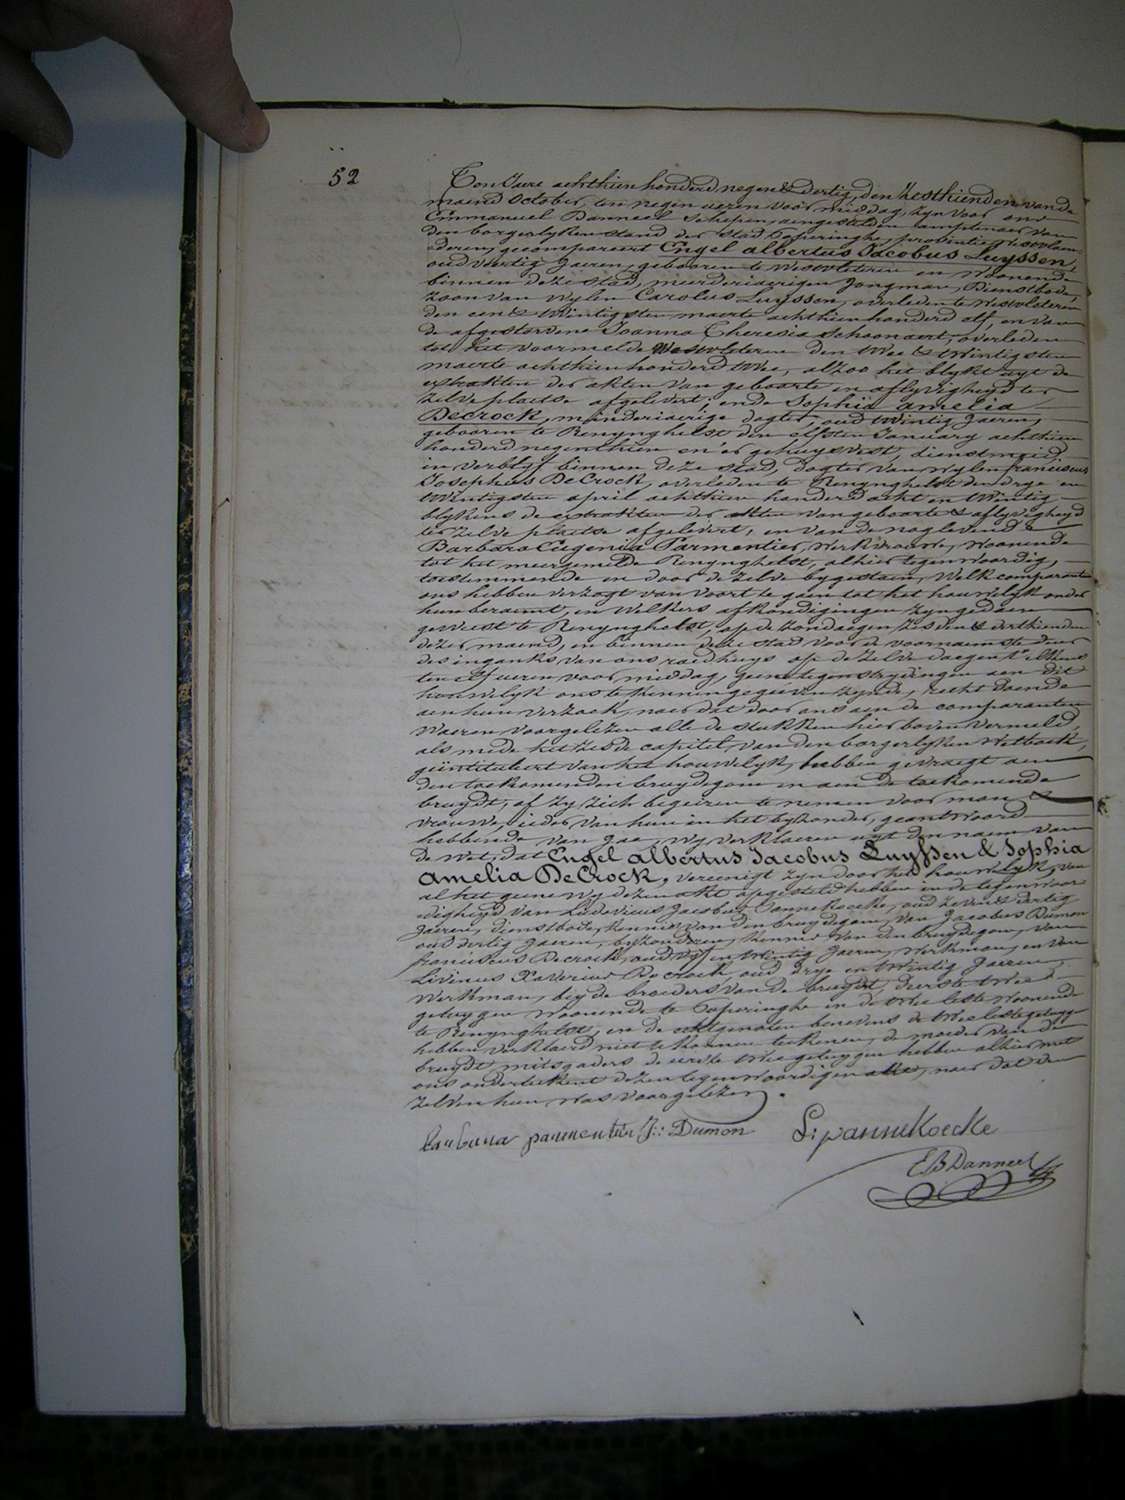 52
Ten Jaere achthien honderd negen & dertig, den Zesthienden van de
maend October, ten negen ueren voor middag, zyn voor ons
Emmanuel Danneel Schepen, aengestelden amptenaer van
den borgerlyken stand der Stad Poperinghe, provintie Westvlaen-
deren, gecompareert Engel albertus Jacobus Luyssen,
oud veertig Jaeren, gebooren te Westvleteren en Woonende
binnen deze stad, meerderjaerigen Jongman, Dienstbode,
zoon van Wylen Carolus Luyssen, overleden te Westvleteren
den een & twintigsten maerte achthien honderd elf, en van
de afgestorvene Joanna Theresia Schoonaert, overleden
tot het voormelde Westvleteren den twee & twintigsten
maerte achthien honderd twee, alzoo het blykt uyt de
extrakten der akten van geboorte en aflyvigheyd ter
zelve plaetse afgelevert; ende Sophia amelia
DeCrock, minderjaerige dogter, oud twintig Jaeren,
gebooren te Renynghelst den elfsten January achthien
honderd negenthien en er gehuysvest, dienstmeid,
in verblyf binnen deze stad, dogter van wylen franciscus
Josephus DeCrock, overleden te Renynghelst den drye en
twintigsten april achthien honderd acht en twintig,
blykens de extrakten der akten van geboorte & aflyvigheyd
ter zelve plaetse afgelevert, en van de naglevende
Barbara Eugenia Parmentier, werkvrouwe, woonende
tot het meergemelde Renynghelst, alhier tegenwoordig,
toestemmende en door de zelve bygestaen, Welk comparanten
ons hebben verzogt van voort te gaen tot het houwelyk onder
hun beraemt, en Welkers afkondigingen zyn gedaen
geweest te Renynghelst, op de zondaegen zesden & derthienden
dezer maend, en binnen deze stad voor de voornaemste deur
des inganks van ons raedhuys op de zelve daegen telkens
ten elf ueren voor middag, geene tegenstrydingen aen dit
houwelyk ons te kennen gegeeven zynde, recht doende
aen hun verzoek, naer dat door ons aen de comparanten
waeren voorgelezen alle de stukken hier boven vermeld,
als mede het zesde capitel van den borgerlyken Wetboek,
geïntituleert van het houwelyk, hebben gevraegt aen
den toekomenden bruydegom en aen de toekomende
bruydt, of zy zich begeiren te nemen voor man &
vrouwe, ieder van hun in het byzonder, geantwoord
hebbende van Jae, wy verklaeren uyt den naem van
de wet, dat Engel albertus Jacobus Luyssen & Sophia
amelia DeCrock, vereenigt zyn door het houwelyk, van
al het geene wy dezen akt opgesteld hebben in de tegenwoor-
digheyd van Ludovicus Jacobus Pannekoecke, oud zeven & dertig
Jaeren, dienstbode, kennis van den bruydegom, van Jacobus Dumon
oud dertig Jaeren, byzonderen, kennis van den bruydegom, van
franciscus Decrock, oud vyf en twintig Jaeren, Werkman, en van
Livinus Xaverius Decrock oud drye en twintig Jaeren,
Werkman, bey de broeders van de bruydt, d'eerste twee
getuygen woonende te Poperinghe en de twee leste woonende
te Renynghelst, en de echtgenoten benevens de twee leste getuygen
hebben verklaerd niet te konnen teekenen, de moeder van de
bruydt mitsgaders de eerste twee getuygen hebben alhier met
ons onderteekent dezen tegenwoordigen akte, naer dat den
zelven hun was voorgelezen.
barbara parmentier J: Dumon L: pannekoecke
E B Danneel